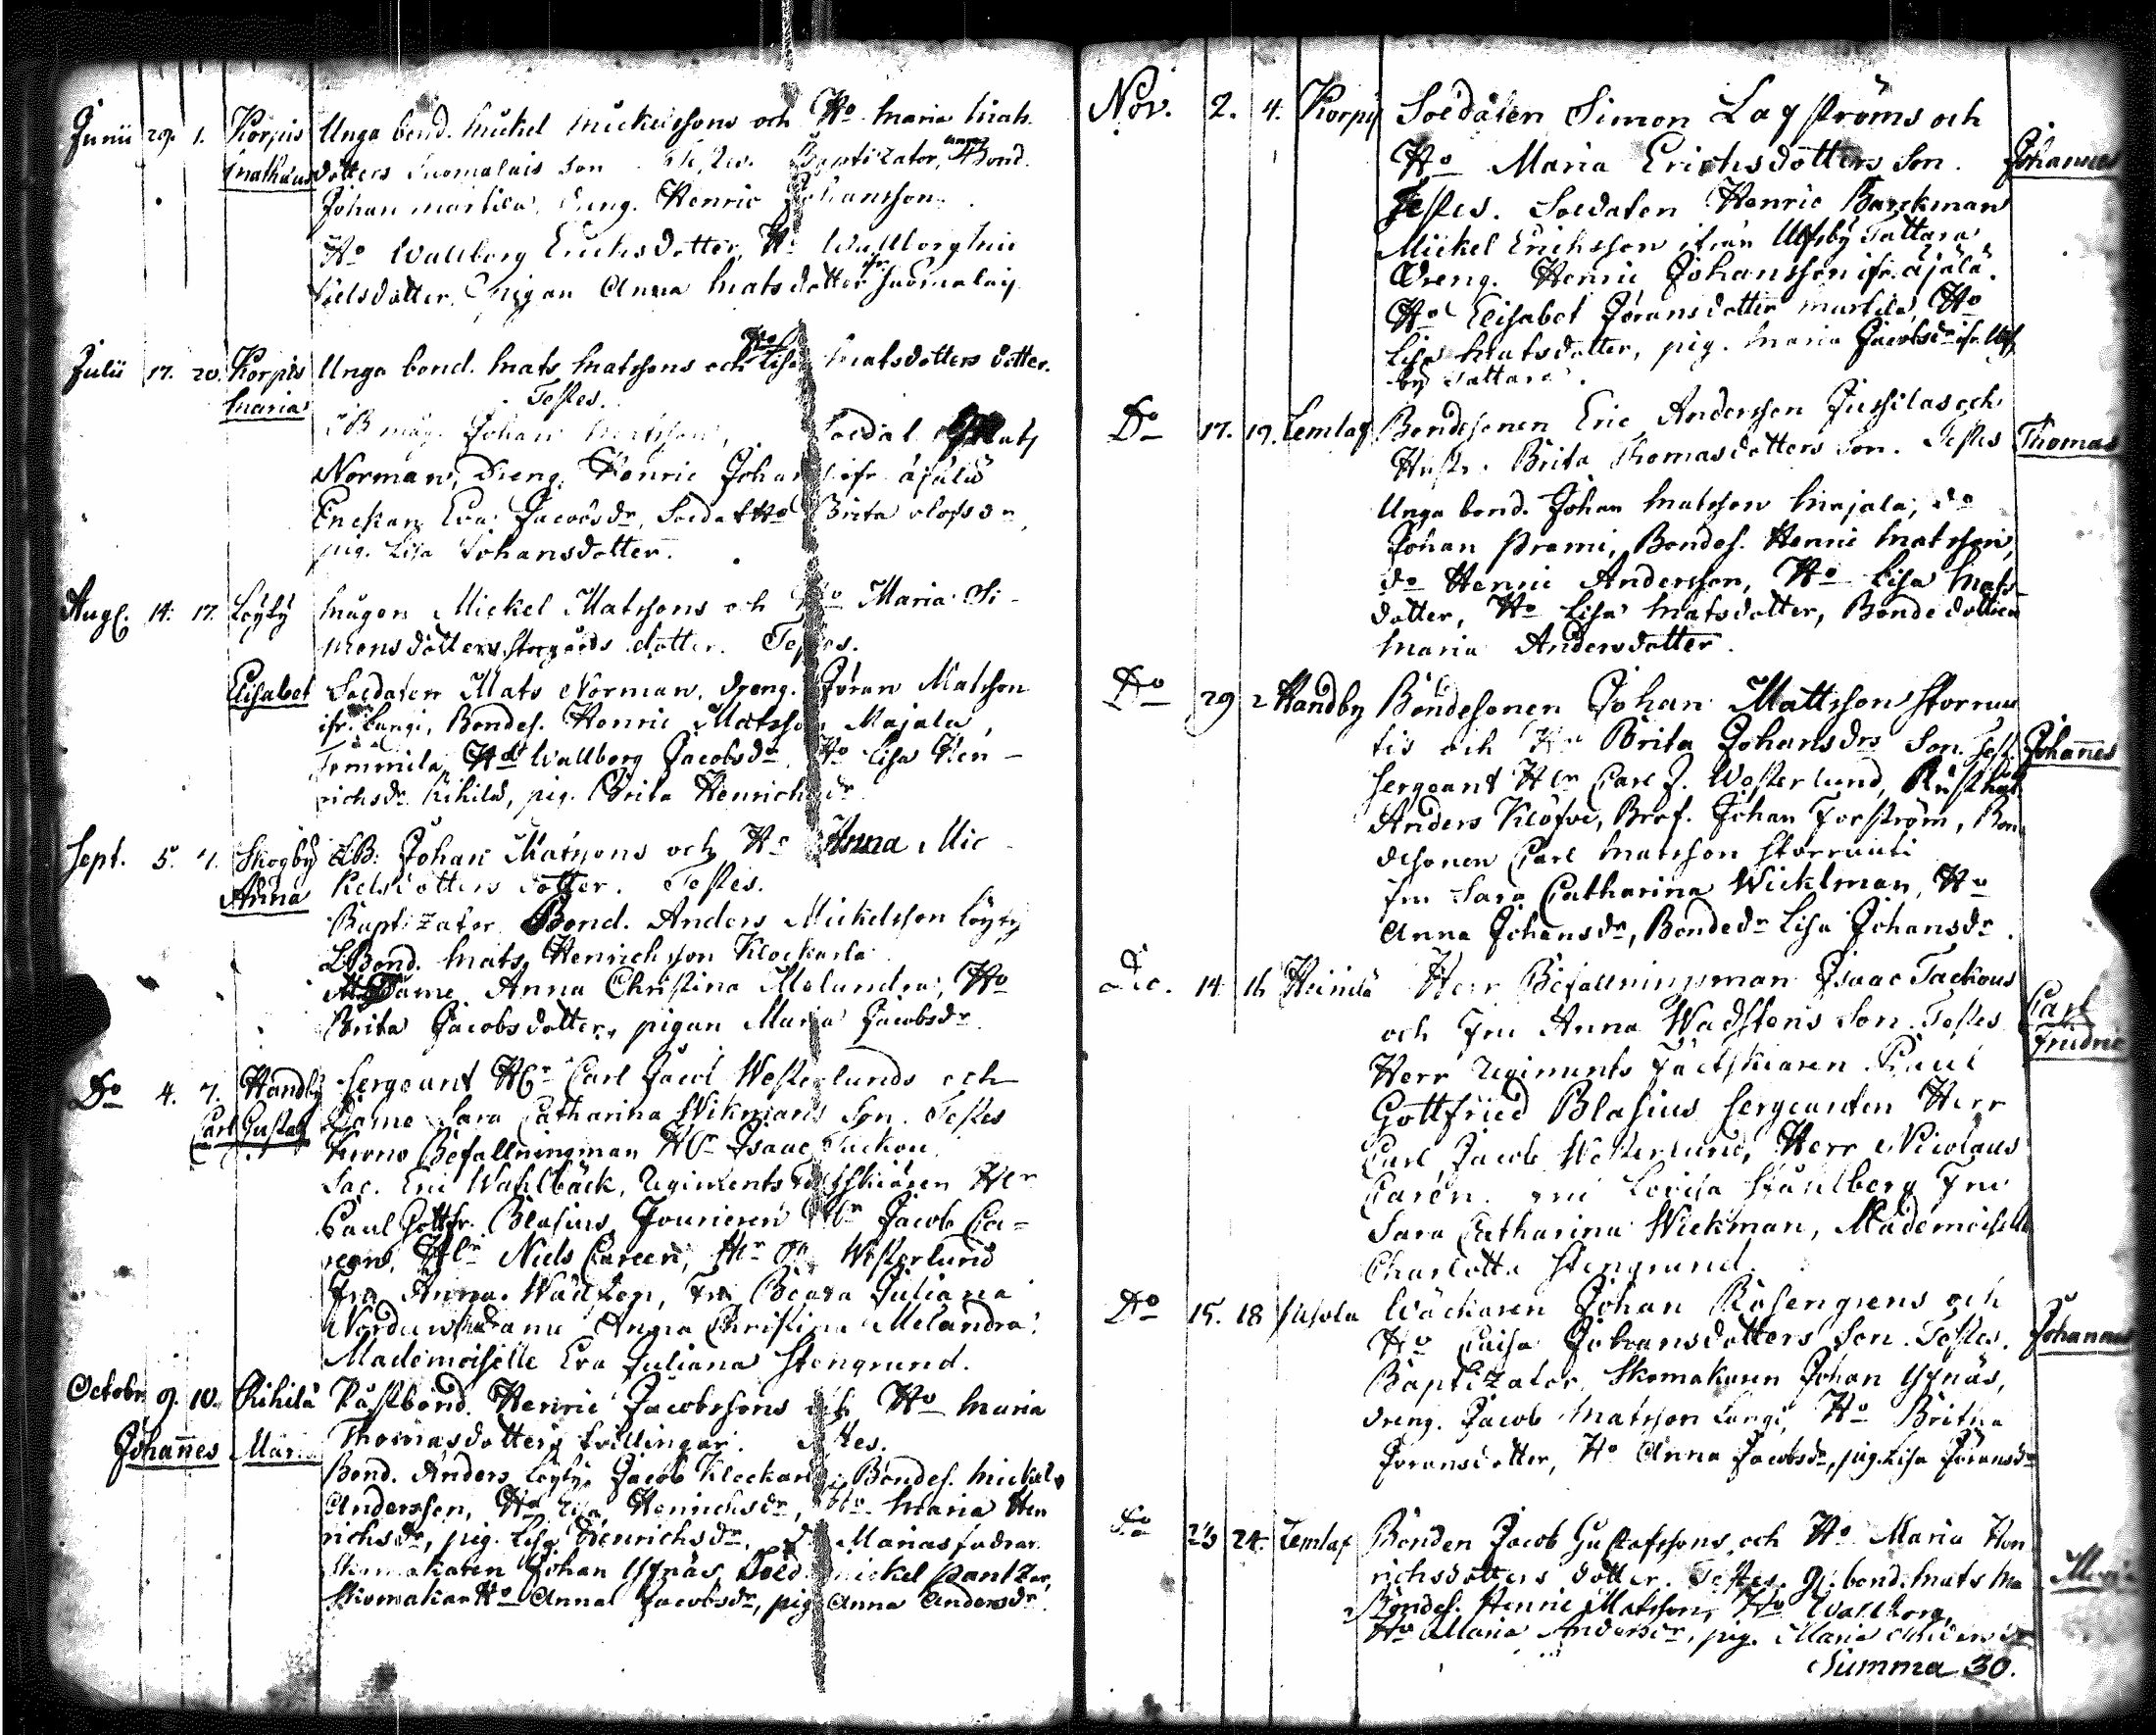 Junii 29. 1. Korpis Unga bond. Mickel Mickelssons och Ho Maria Mats
Mathæus dotters Suomalais son. Testes. Baptizator, unga Bond.
Johan Martila, dreng. Henric Johansson.
Ho Wallborg Erichsdotter, Ho Wallborg Mic
kelsdotter, pigan Anna Matsdotter ifr. Suomalais
Julii 17. 20. Korpis Unga bond. Mats Matssons och Ho Lisa Matsdotters dotter.
Maria Testes.
Johan Matsson, Soldat Mats
Norman, Dreng. Henric Johans ifr. Äjälä
Enckan Eva Jacobsdr, Soldat Ho Brita Olofsdr,
pig. Lisa Johansdotter.
Aug. 14. 17. Löyty Mågen Mickel Matssons och Ho Maria Si-
monsdotters Storgårds dotter. Testes.
Elisabet Soldaten Mats Norman, dreng. Jöran Matsson
ifr. Langi, Bondes. Henric Matsson Majala,
Ho Wallborg Jacobsdr, Ho Lisa Hen-
richsdr Kihilä, pig. Brita Henrichsdr
Sept. 5. 7. Skogby LB. Johan Matssons och Ho Anna Mic-
Anna kelsdotters dotter. Testes.
Baptizator Bond. Anders Mickelsson Löyty
LBond. Mats Henrichsson Klockarla
Dame Anna Christina Melandra, Ho
Brita Jacobsdotter, pigan Maria Jacobsdr
Do 4. 7. Handby Sergeant Hr Carl Jacob Westerlunds och
Carl Gustaf Dame Sara Catharina Wikmans Son. Testes
Befallningman Hr Isaac Tackou
Sac. Eric Wahlbäck, Regiments fältskiären Hr
Paul Gottfr. Blasius, Foureren Hr Jacob Ca-
reen, Hr Niels Careen, Hr Westerlund
fru Anna Wadsten, fru Beata Juliana
dame Anna Christina Melandra
Mademoiselle Eva Juliana Stengrund.
Octobr. 9. 10. Kihilä Rustbond. Henric Jacobssons och Ho Maria
Johannes Maria Thomasdotters tvillingar. Testes.
Bond. Anders Löyty, Jacob Klockarla, Bondes. Mickel
Andersson, Ho Lisa Henrichsdr, Ho Maria Hen
richsdr, pig. Lisa Henrichsdr, Marias fadrar
Skomakaren Johan Ysnäs, Sold. Mickel Pantzar,
Skomakar Ho Anna Jacobsdr, pig. Anna Andersdr.
Nov. 2. 4. Korpis Soldaten Simon Lagströms och
Ho Maria Erichsdotters Son. Johannes
Testes. Soldaten Henric Barckman
Mickel Erichsson ifrån Ulfsby Tattara
Dreng. Henric Johansson ifr. Äjälä.
Ho Elisabet Jöransdotter Martila, Ho
Lisa Matsdotter, pig. Maria Jacobsdr ifr. Ulfs
by Tattara.
Do 17. 19. Lemlax Bondesonen Eric Andersson Jussilas och
Hustr. Brita Thomasdotters Son. Testes Thomas
Unga bond. Johan Matsson Majala, do
Johan Prami, Bondes. Henric Matsson,
do Henric Andersson, Ho Lisa Mats-
dotter, Ho Lisa Matsdotter, Bondedottren
Maria Andersdotter.
Do 29 2 Handby Bondesonen Johan Mattsson Storran
tis och Ho Brita Johansdrs Son. Test. Johannes
Sergeant Hr Carl J. Westerlund, Rusthål.
Anders Klöfve, Brof. Johan Forström, Bon
desonen Carl Matsson Storranti
fru Sara Catharina Wicklman, Ho
Anna Johansdr, Bondedr Lisa Johansdr.
Dec. 14 16 Heinilä Herr Befallningsman Isaac Tackous
och fru Anna Wadstens Son. Testes Carl
Fredric
Herr Regiments Fältskiären Paul
Gottfried Blasius Sergeanten Herr
Carl Jacob Westerlund, Herr Nicolaus
Careen. fru Lovisa Ståhlberg fru
Sara Catharina Wickman, Mademoiselle
Charlotta Stengrund.
Do 15. 18 Wäckaren Johan Rosengrens och
Ho Caisa Johansdotters Son. Testes. Johannes
Baptizator Skomakaren Johan Ysnäs,
dreng. Jacob Matsson Langi, Ho Britha
Jöransdotter, Ho Anna Jacobsdr, pig. Lisa Jöransdr
Do 23 24. Lemlax Bonden Jacob Gustafssons och Ho Maria Hen
richsdotters dotter. Testes. bond. Mats Ma Maria
Bondes. Henric Matsson, Ho Wallborg,
Ho Maria Andersdr, pig. Maria Andersdr
Summa 30.